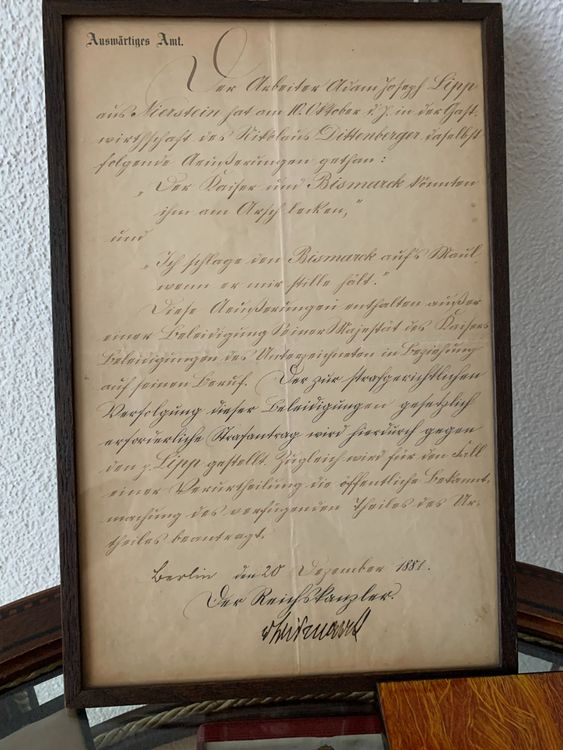 Auswärtiges Amt.
Der Arbeiter Adam Joseph Lipp
aus Nierstein hat am 10. Oktober d. J. in der Gast-
wirthschaft des Nikolaus Dittenberger daselbst
folgende Aeußerungen gethan:
„Der Kaiser und Bismarck könnten
ihm am Arsch lecken,"
und
„Ich schlage den Bismarck auf's Maul,
wenn er mir stille hält."
Diese Aeußerungen enthalten außer
einer Beleidigung Seiner Majestät des Kaisers
Beleidigungen des Unterzeichneten in Beziehung
auf seinen Beruf. Der zur strafgerichtlichen
Verfolgung dieser Beleidigungen gesetzlich
erforderliche Strafantrag wird hierdurch gegen
den p. Lipp gestellt. Zugleich wird für den Fall
einer Verurtheilung die öffentliche Bekannt-
machung des verfügenden Theiles des Ur-
theiles beantragt.
Berlin den 20 Dezember 1881.
Der Reichskanzler.
v Bismarck